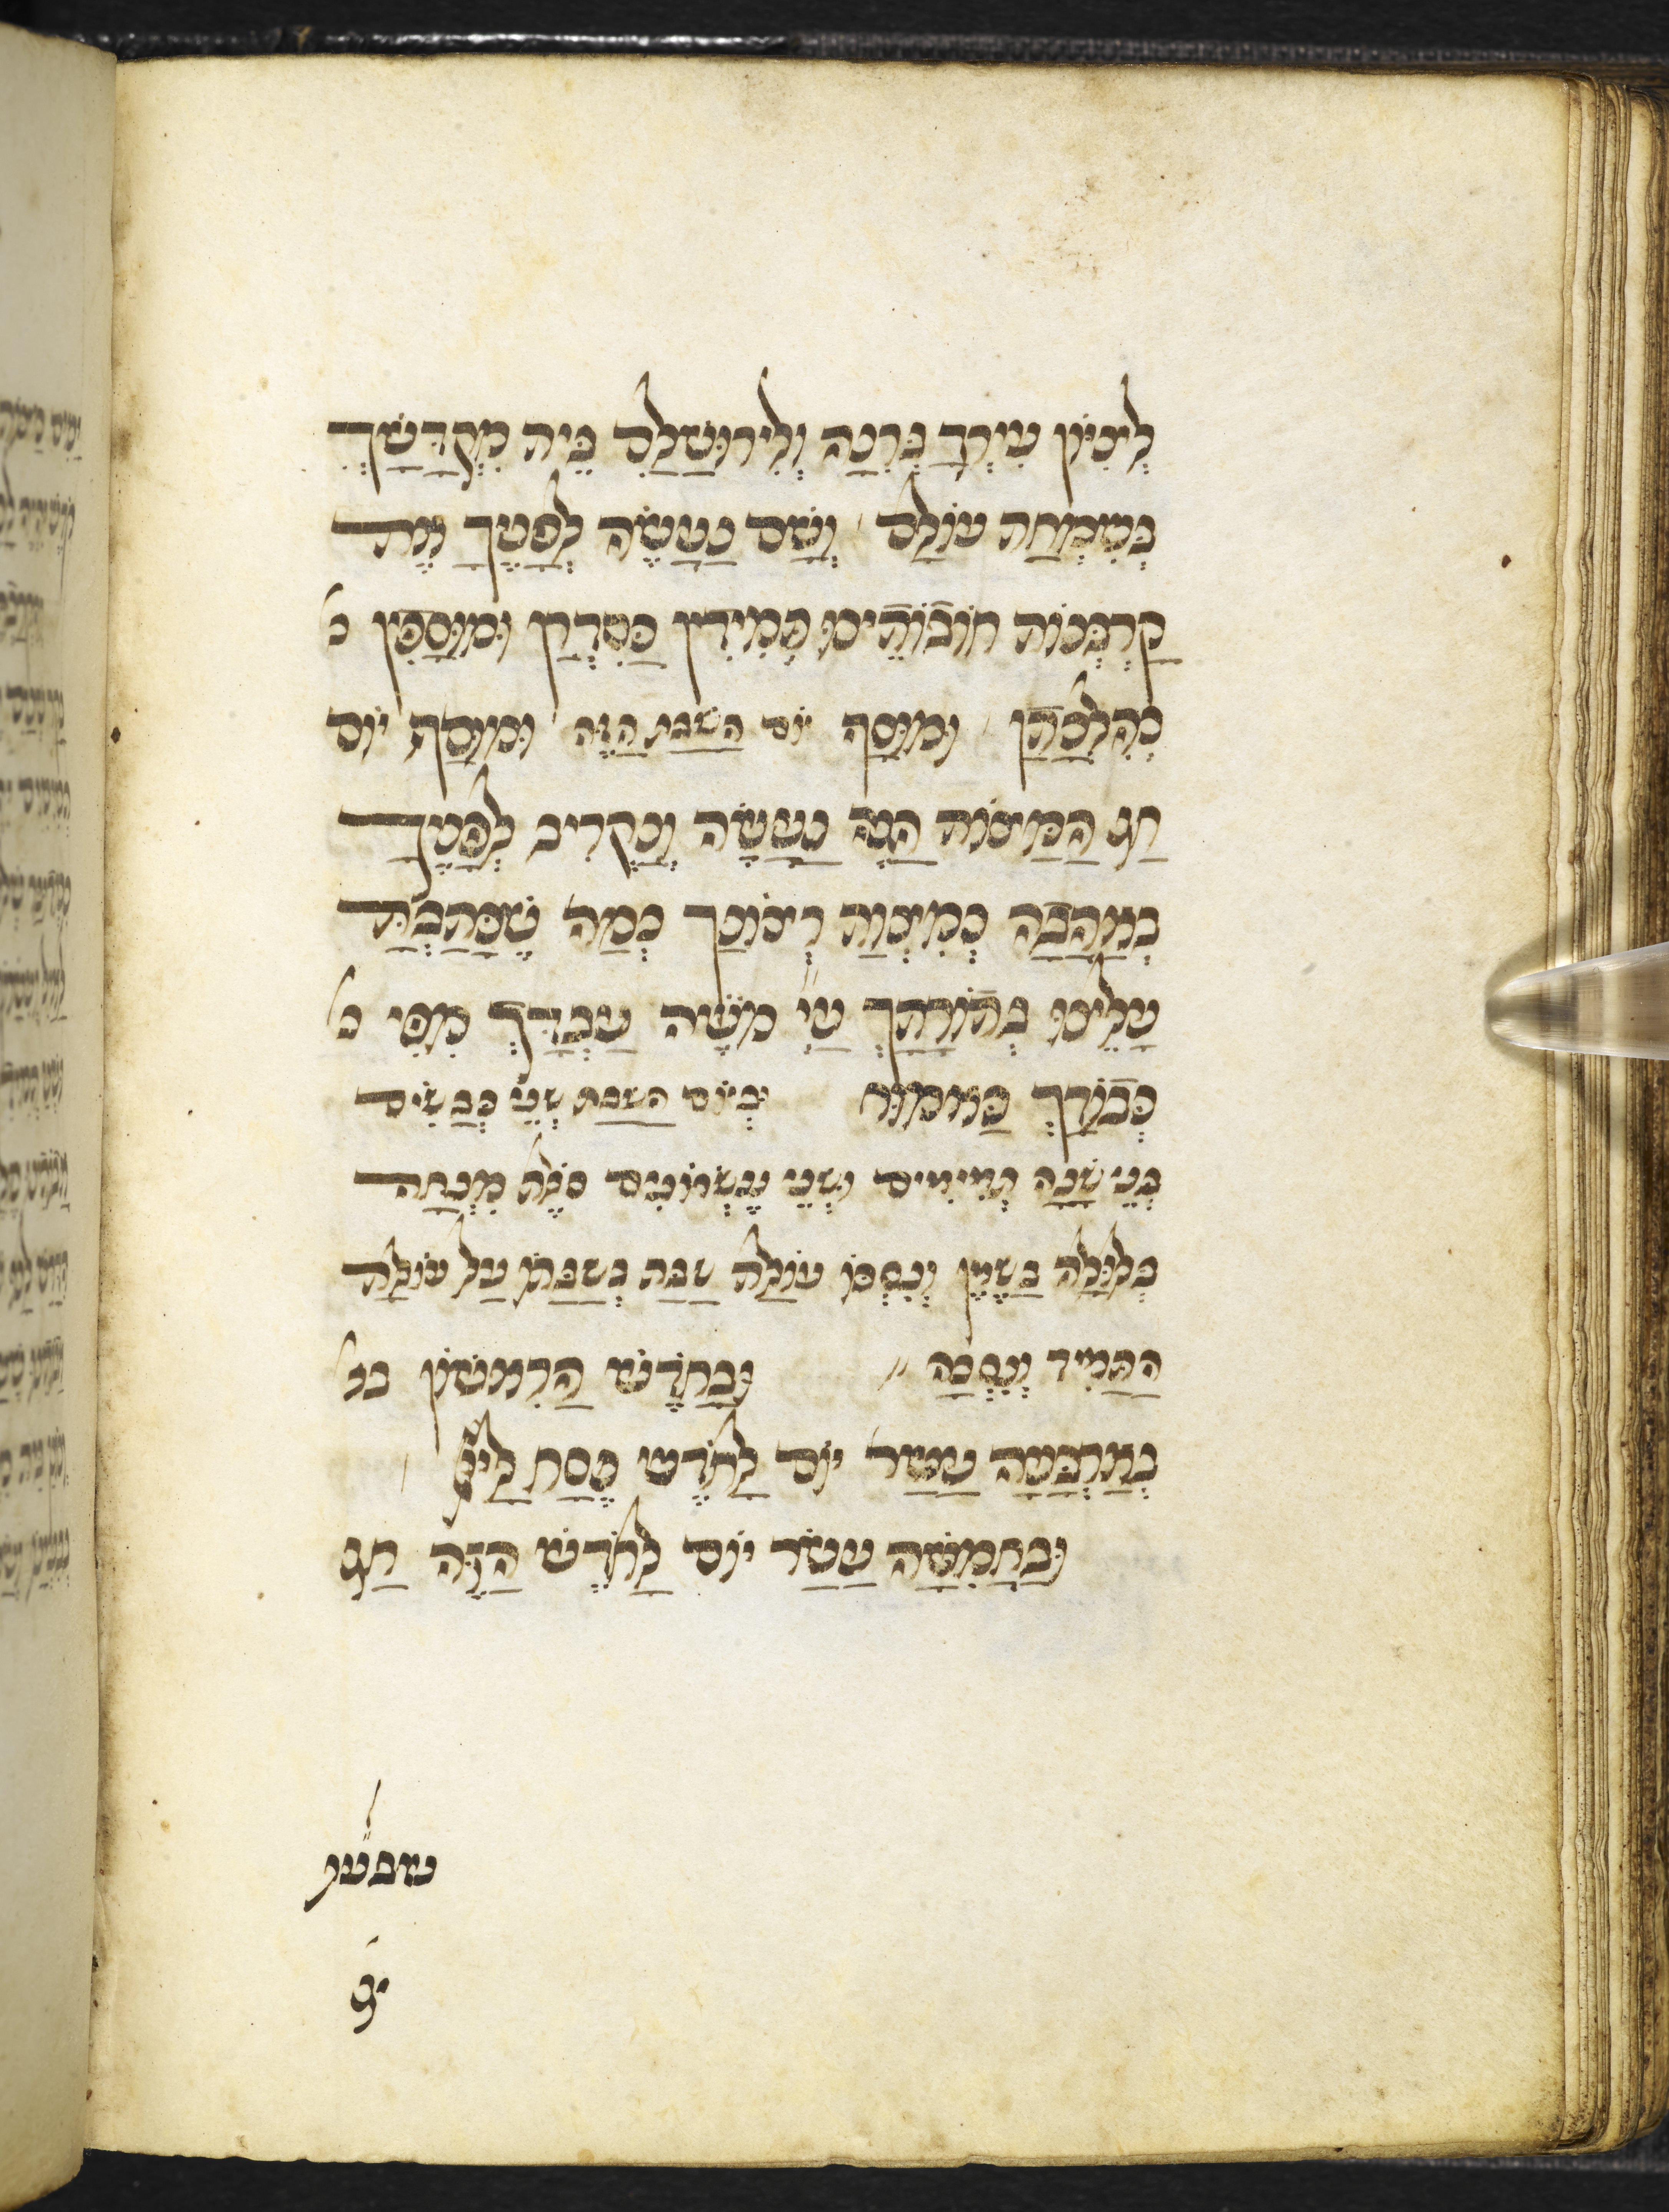 לְצִיּוֹן עִירְךָ בְּרִנָּה וְלִירוּשָׁלַםִ בֵּית מִקְדָּשְׁךָ
בְּשִׂמְחַת עוֹלָם וְשָׁם נַעֲשֶׂה לְפָנֶיךָ אֶת
קָרְבְּנוֹת חוֹבוֹתֵינוּ תְּמִידִין כְּסִדְרָן וּמוּסָפִין כ
כְּהִלְכָתָן וּמוּסַף יוֹם הַשַּׁבָּת הַזֶּה וּמוּסַף יוֹם
חַג הַמַּצּוֹת הַזֶּה נַעֲשֶׂה וְנַקְרִיב לְפָנֶיךָ
בְּאַהֲבָה כְּמִצְוַת רְצוֹנָךְ כְּמָה שֶׁכָּתַבְתָּ
עָלֵינוּ בְּתוֹרָתָךְ עַ״י מֹשֶׁה עַבְדְּךָ מִפִּי כ
כְּבוֹדְךָ כָּאָמוּר וּבְיוֹם הַשַּׁבָּת שְׁנֵי כְבָשִׂים
בְּנֵי שָׁנָה תְּמִימִים וּשְׁנֵי עֶשְׂרוֹנִים סֹלֶת מִנְחָה
בְּלוּלָה בַשֶּׁמֶן וְנִסְכּוֹ עוֹלַת שַׁבַּת בְּשַׁבַּתּוֹ עַל עוֹלַת
הַתָּמִיד וְנִסְכָּהּ וּבַחֹדֶשׁ הָרִאשׁוֹן בכ
בְּאַרְבָּעָה עָשָׂר יוֹם לַחֹדֶשׁ פֶּסַח לַיי
וּבַחֲמִשָּׁה עָשָׂר יוֹם לַחֹדֶשׁ הַזֶּה חַג
שבעת